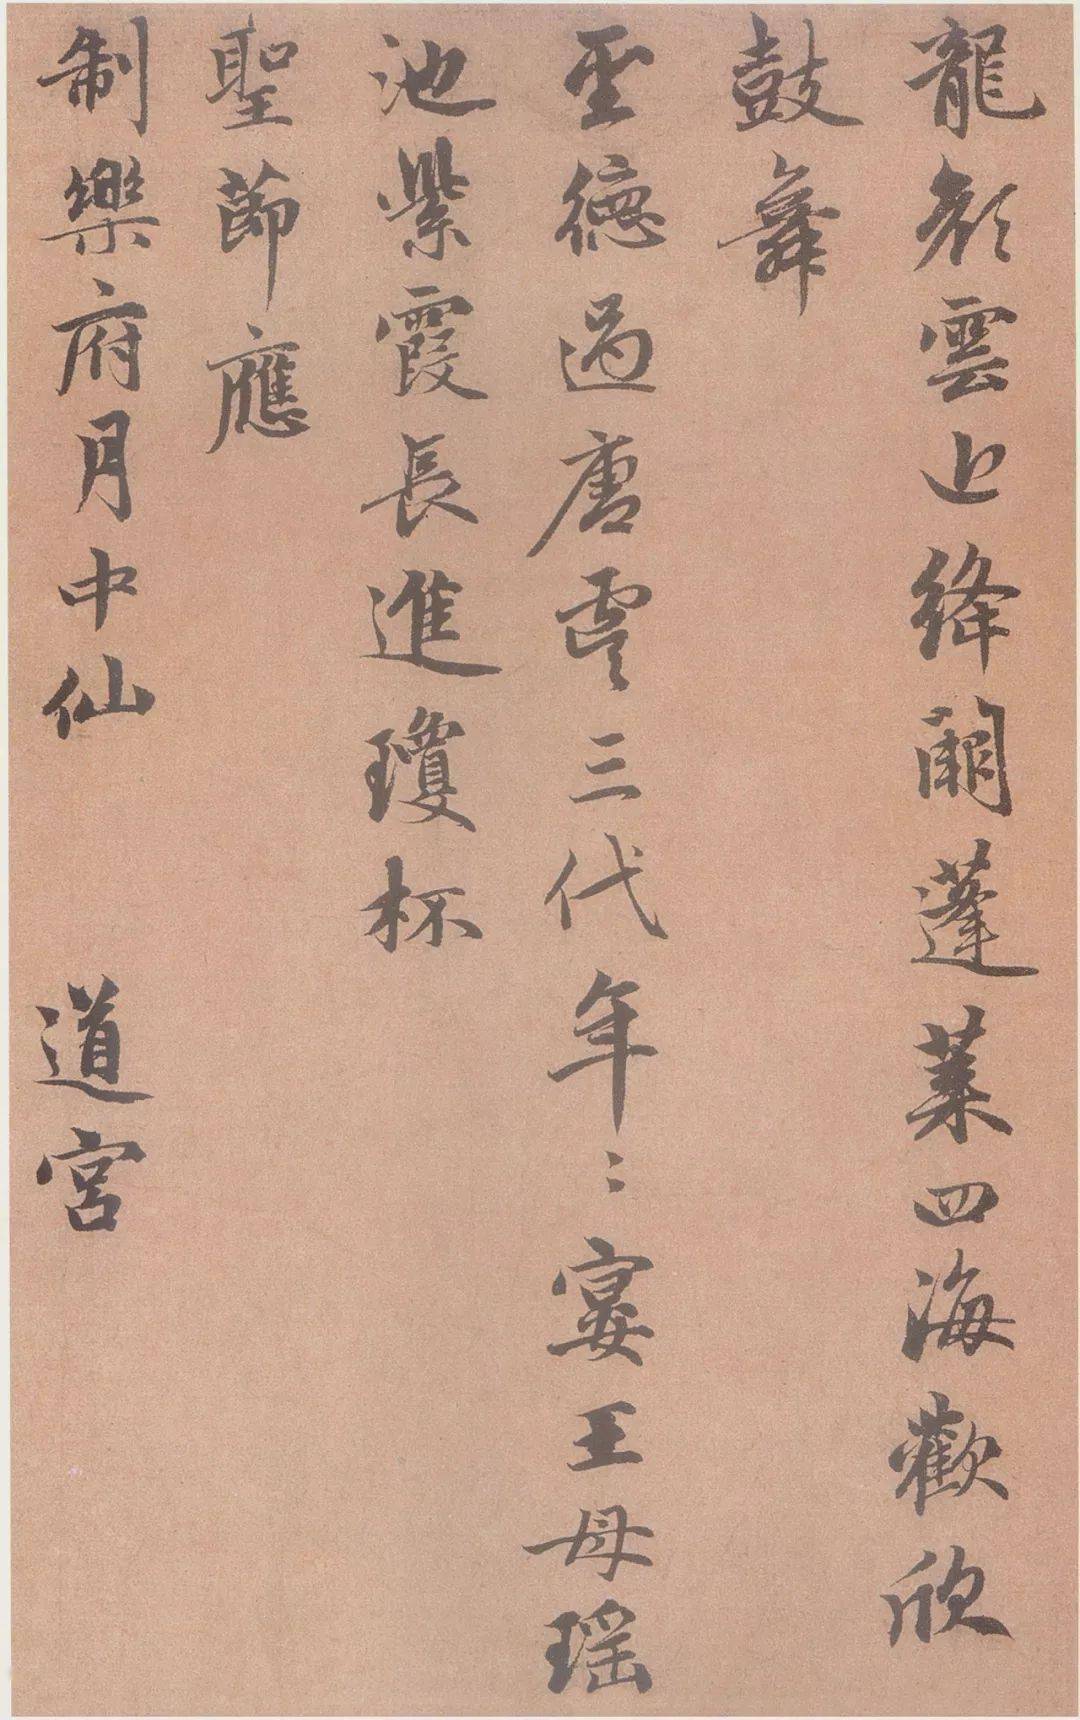 龍顔雲上絳闕蓬萊四海歡欣
鼓舞
聖德過唐虞三代年〻宴王母瑤
池紫霞長進瓊杯
聖節應
制樂府月中仙　道宮